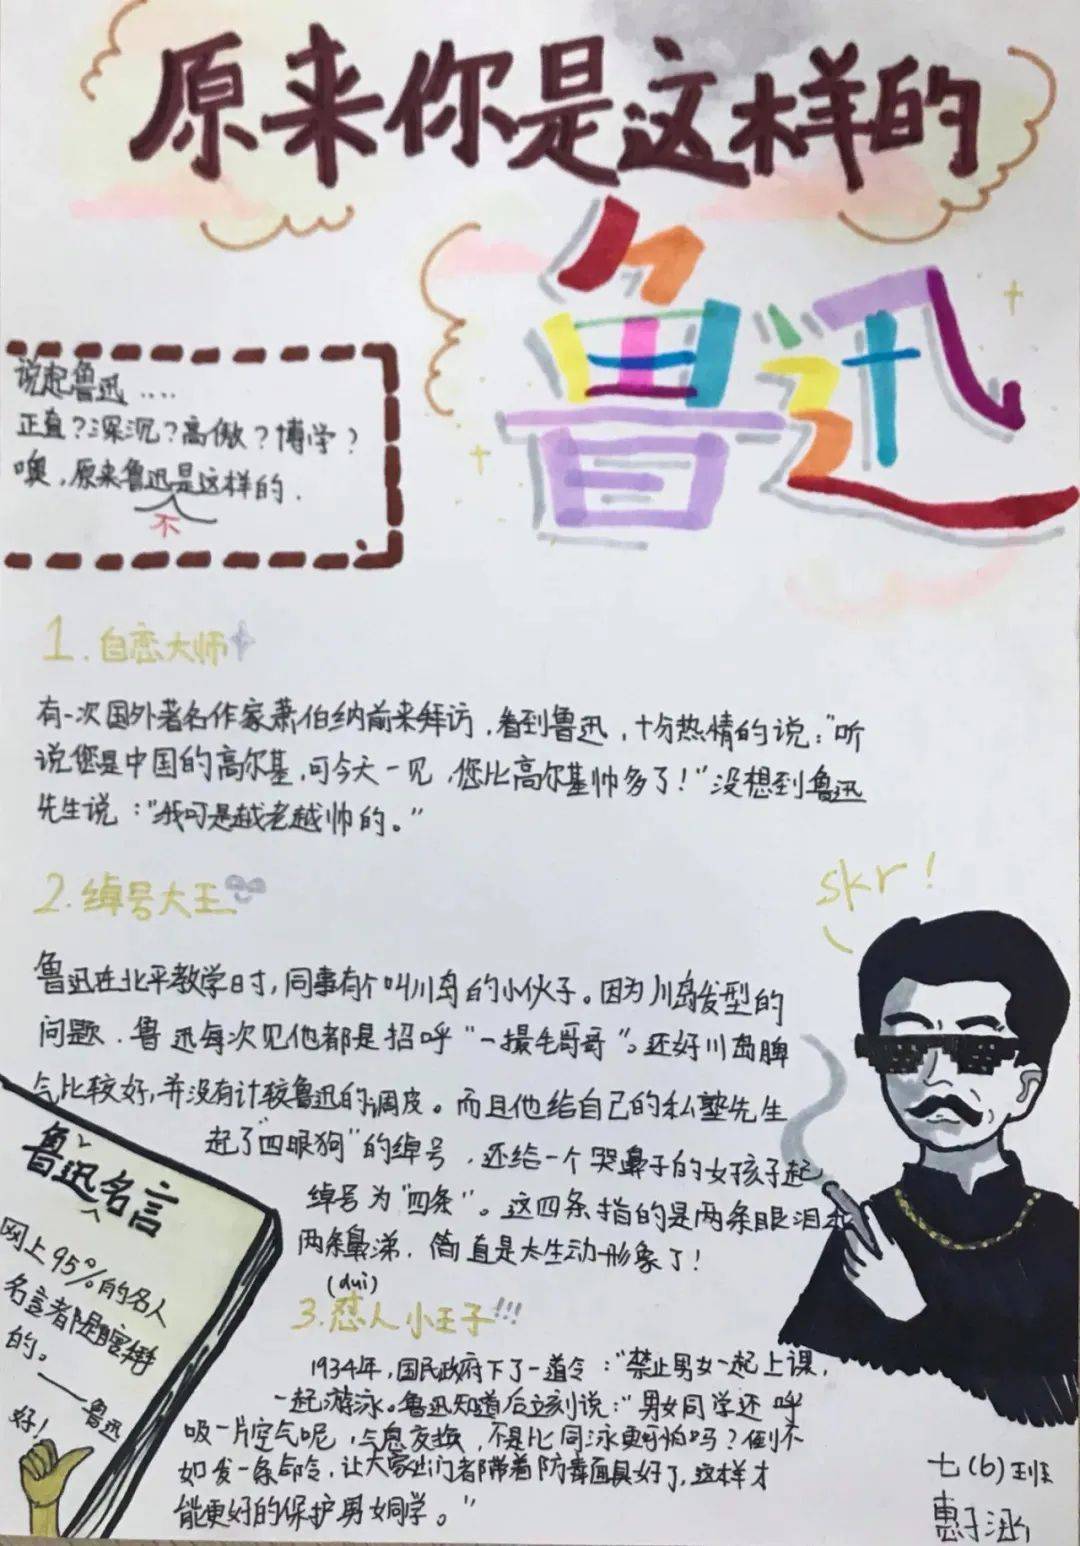 原来你是这样的
鲁迅
说起鲁迅....
正直？深沉？高傲？博学？
噢，原来鲁迅是这样的.
不
1.自恋大师
有一次国外著名作家萧伯纳前来拜访，看到鲁迅，十分热情的说：“听
说您是中国的高尔基，可今天一见，您比高尔基帅多了！”没想到鲁迅
先生说：“我可是越老越帅的。”
2.绰号大王
skr！
鲁迅在北平教学日寸，同事有个叫川岛的小伙子。因为川岛发型的
问题，鲁迅每次见他都是招呼“一撮毛哥哥”。还好川岛脾
气比较好，并没有计较鲁迅的调皮。而且他给自己的私塾先生
起了“四眼狗”的绰号，还给一个哭鼻子的女孩子起
绰号为“四条”。这四条指的是两条眼泪和
两条鼻涕，简直是太生动形象了！
(duì)
3.怼人小王子!!!
1934年，国民政府下了一道令：“禁止男女一起上课，
一起游泳。鲁迅知道后立刻说：“男女同学还呼
吸一片空气呢，气息交换，不是比同泳更可怕吗？倒不
如发一条命令，让大家出门都带着防毒面具好了，这样才
能更好的保护男女同学。”
鲁迅名言
网上95%的名人
名言都是瞎掰
的。
——鲁迅
好！
七(6)班
惠子涵